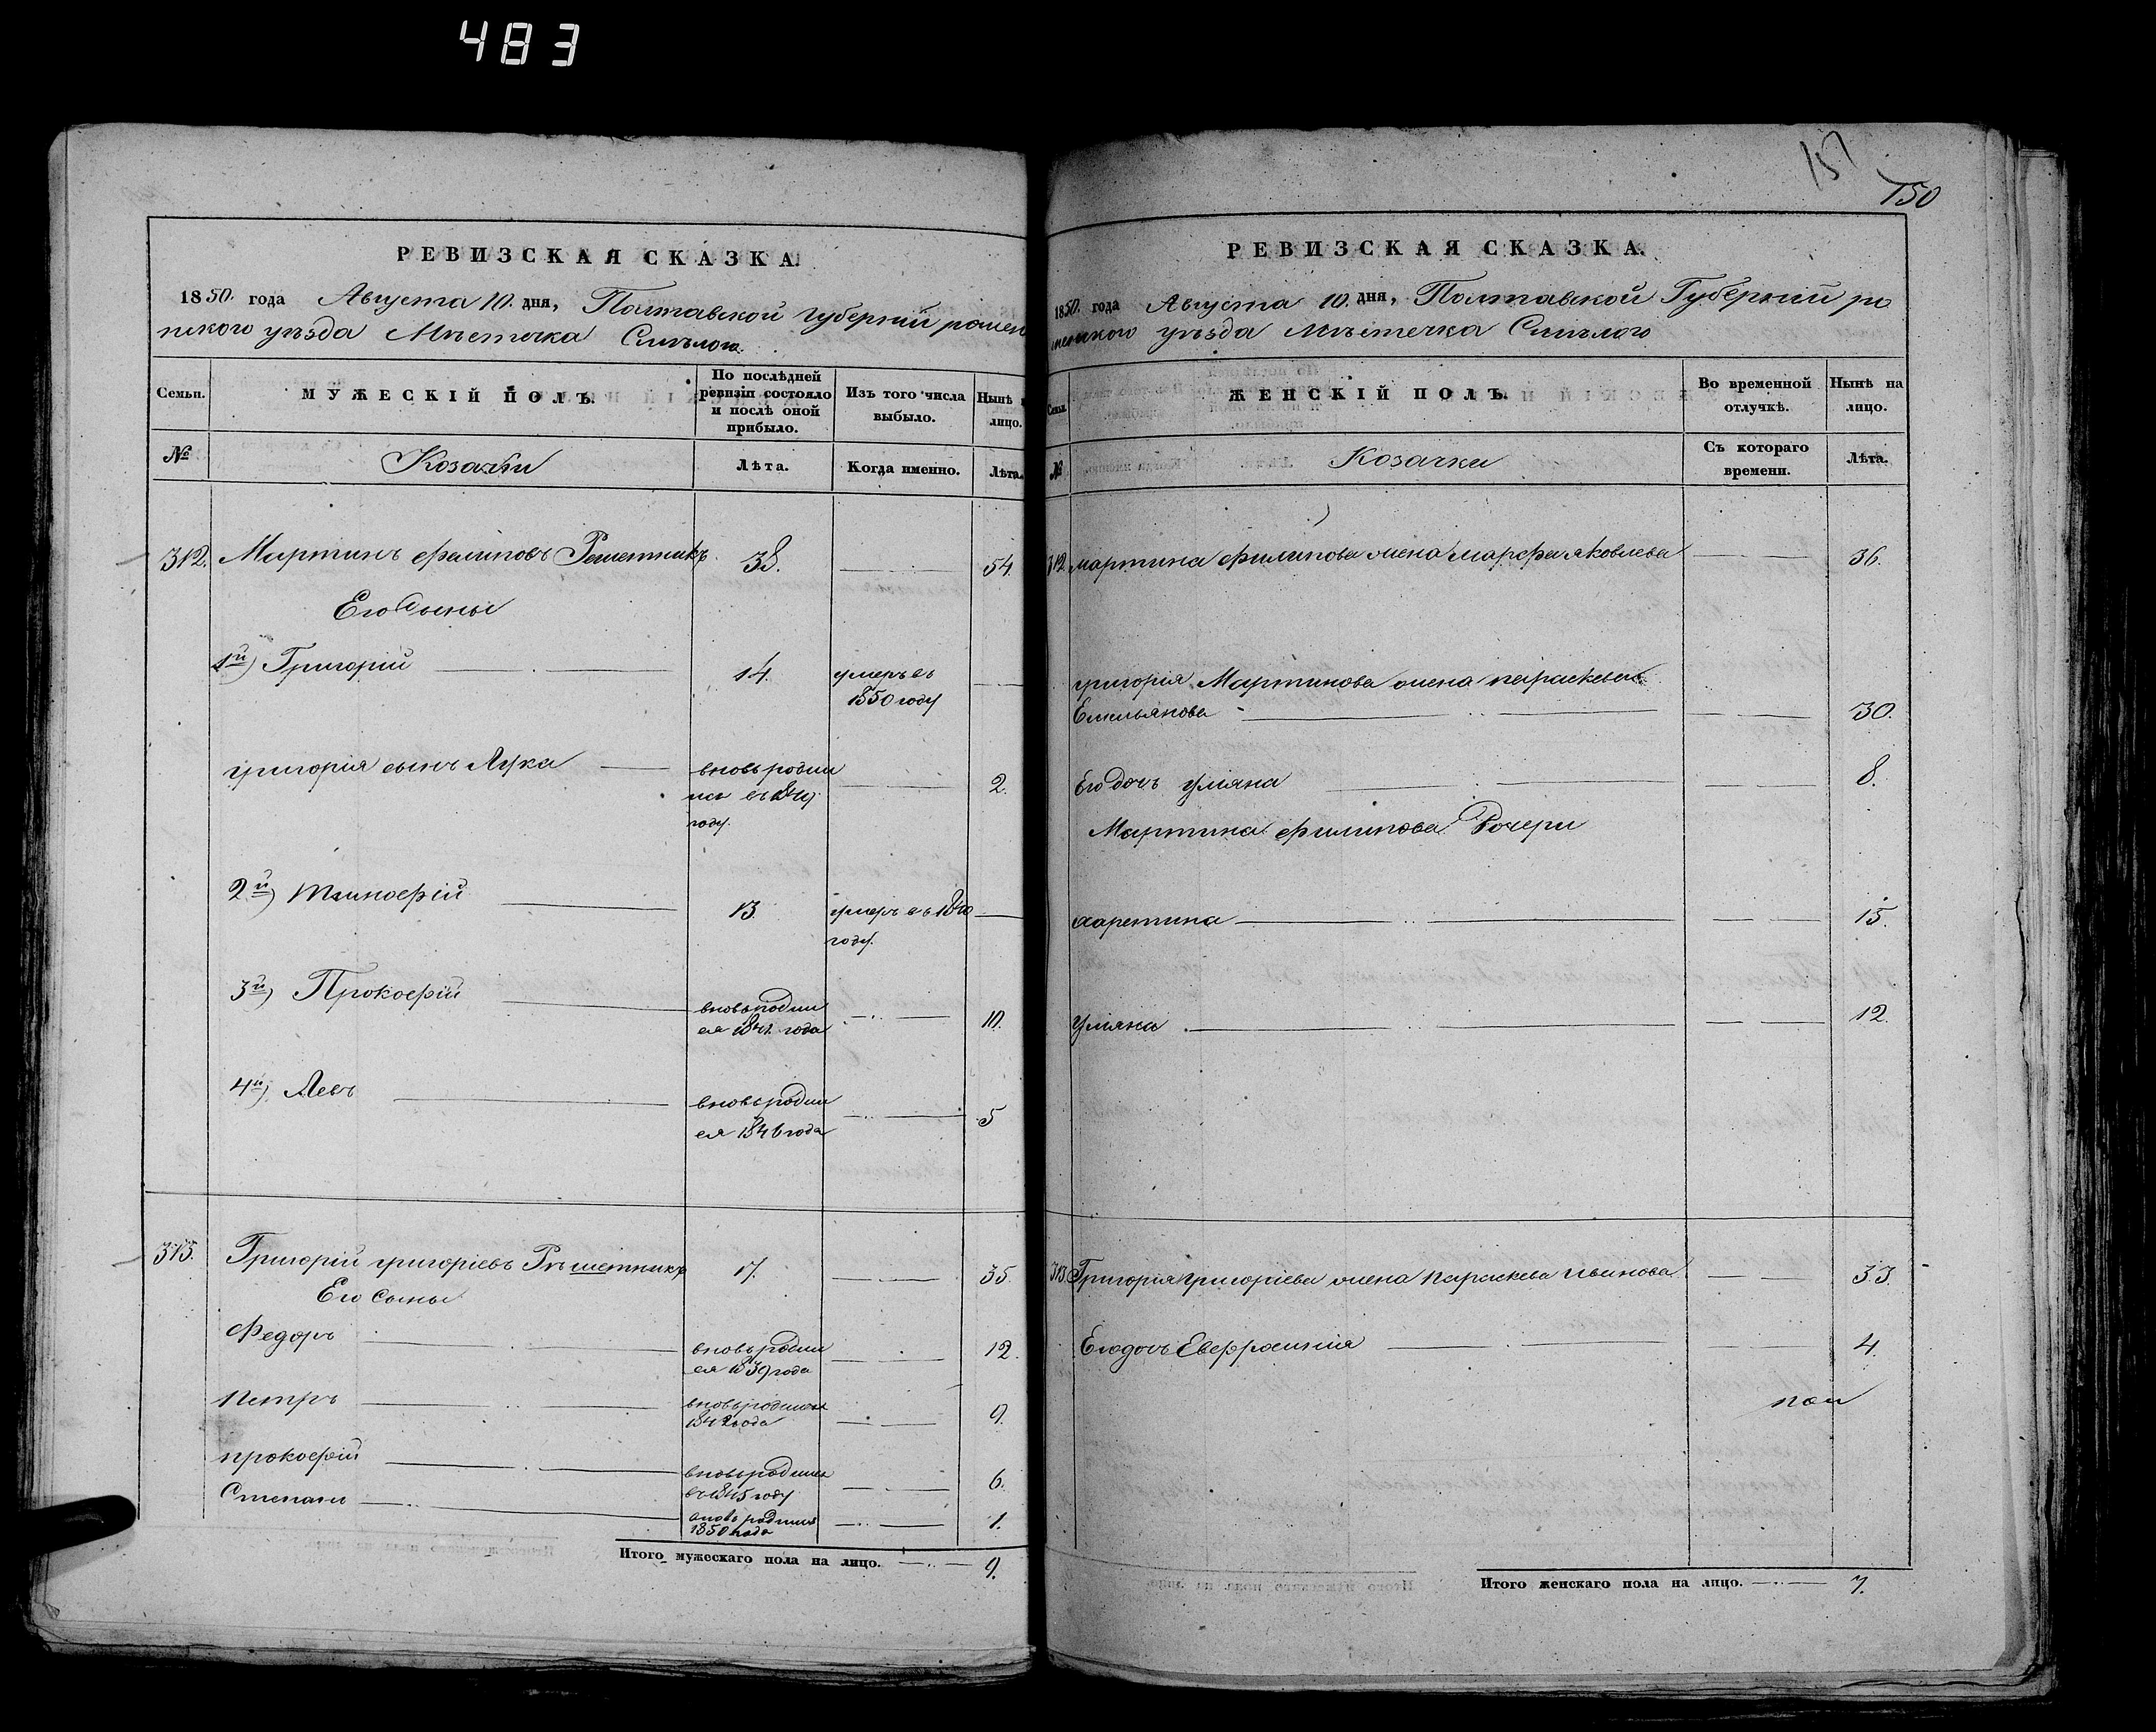 483
РЕВИЗСКАЯ СКАЗКА.
1850. года Августа 10. дня, Полтавской губерніи ромен
нского уѣзда Мѣстечка Смѣлого.
Семьи.
МУЖЕСКІЙ ПОЛЪ.
По послѣдней ревизіи состояло и послѣ оной прибыло.
Изъ того числа выбыло.
Нынѣ на лицо.
№
Козаки
Лѣта.
Когда именно.
Лѣта.
312. Мартинъ Филиповъ Решетникъ 38. 54.
Его Сыны
1й) Григорій 14. умеръ въ
1850 году
Григорія сынъ Лука вновь родил
ся въ 1849 2.
году.
2й) Тимофій 13 умеръ въ 1840
году.
3й) Прокофій вновь родил
ся 1841 года 10.
4й) Левъ вновь родил
ся 1846 года 5
313. Григорій григоріевъ Рѣшетникъ 17. 35.
Его сыны
Федоръ вновь родил
ся 1839 года 12.
Петръ вновь родился
1842 года 9.
прокофій вновь родился
въ 1845 году 6.
Степанъ вновь родился
1850 года 1.
Итого мужескаго пола на лицо. 9.
151
150
РЕВИЗСКАЯ СКАЗКА.
1850. года Августа 10. дня, Полтавской Губерніи ро
менского уѣзда Мѣстечка Смѣлого
Семьи.
ЖЕНСКІЙ ПОЛЪ.
Во временной отлучкѣ.
Нынѣ на лицо.
№
Козачки
Съ котораго времени.
Лѣта.
312. мартина филипова жена марфа яковлева 36.
григорія Мартинова жена параскева
Емельянова 30.
Его дочь Уляна 8.
Мартина филипова Дочери
харитина 15.
Уляна 12.
313. Григорія григоріева жена параскева Иванова 33.
Его дочь Евфросинія 4.
Итого женскаго пола на лицо. 7.